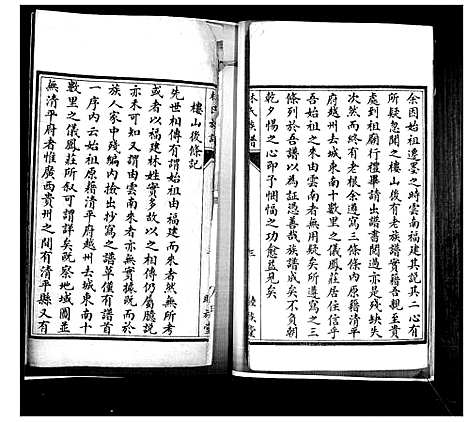 余因始祖遷墨之時雲南福建說其一心有
所疑忽聞之樓山後有老族譜實籍吾親至貴
處到祖廟行禮畢請出譜書閱過亦是殘缺失
次然而終有老根余遵寫三條條內原籍清平
府越州去城東南十數里之儀鳳莊居住信乎
吾始祖之來由雲南者無用疑矣所遵寫之三
條列於吾譜以為証憑善哉族譜成矣不負朝
乾夕惕之心即予悃愊之功愈益見矣
林氏族譜
三
睦族堂
樓山後條記
先世相傳有謂始祖由福建而來者然無所考
或者以福建林姓實多故以之相傳仍屬臆說
亦未可知又有謂由雲南來者亦無實據既而於
族人家中殘編內撿出抄寫之譜草僅有譜首
一序內云始祖原籍清平府越州去城東南十
數里之儀鳳莊所叙可謂詳矣既察地域圖並
無清平府者惟廣西貴州之間有清平縣又有